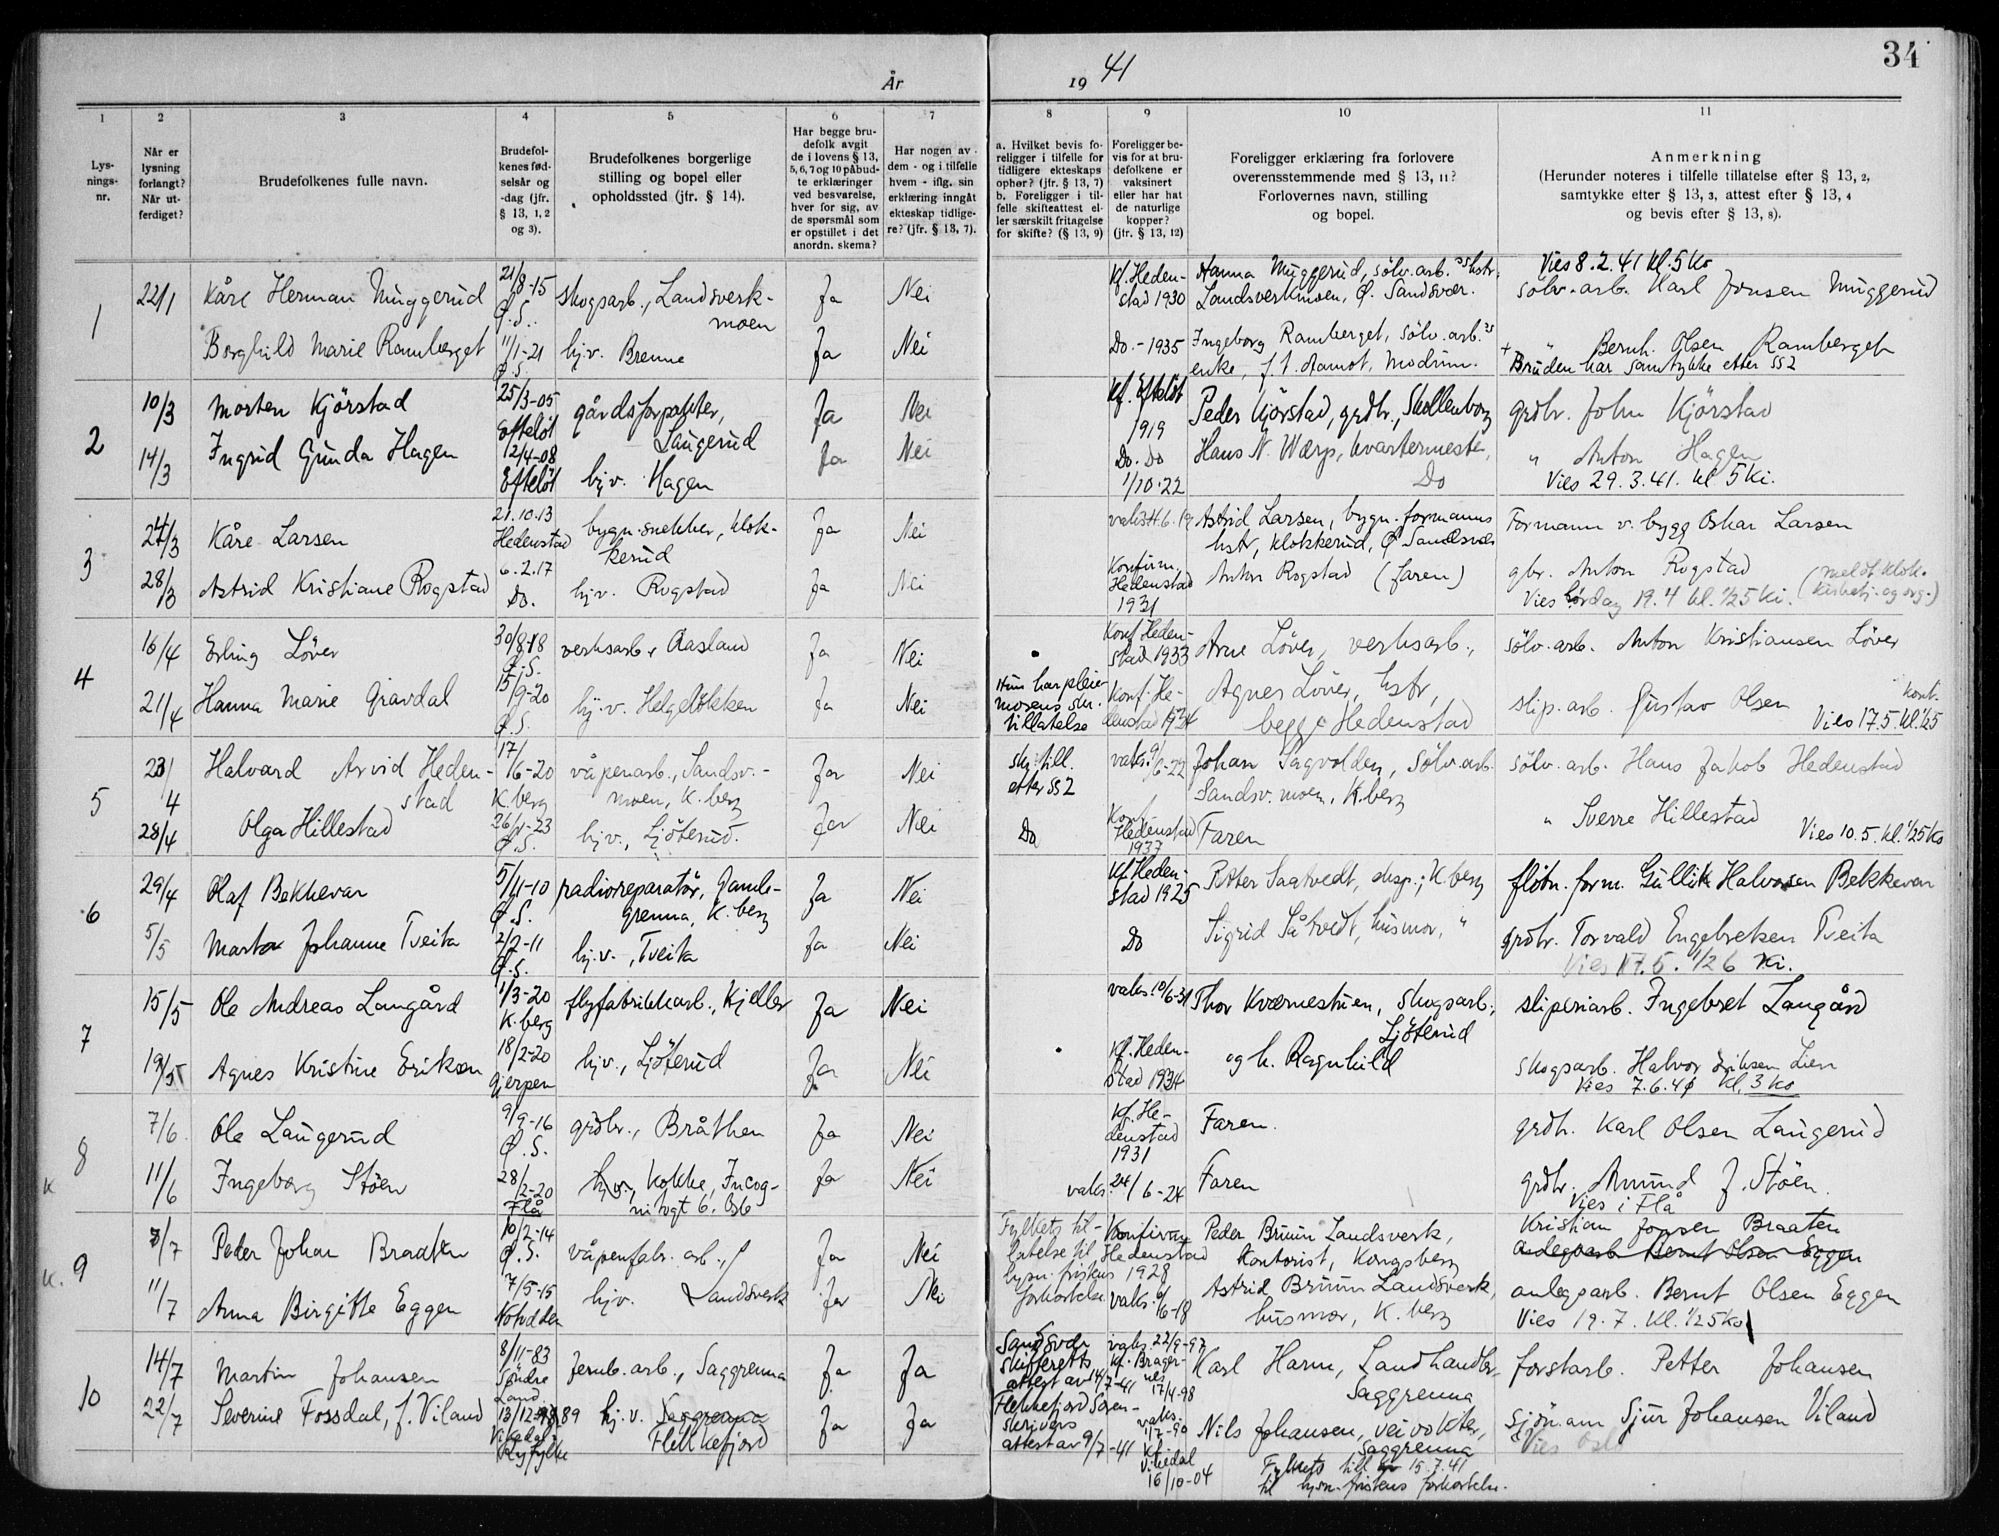 34
År 19 41
1 2 3 4 5 6 7 8 9 10 11
Lys-
nings-
nr.
Når er
lysning
forlangt?
Når ut-
ferdiget?
Brudefolkenes fulle navn.
Brudefol-
kenes fød-
selsår og
-dag (jfr.
§ 13, 1, 2
og 3).
Brudefolkenes borgerlige
stilling og bopel eller
opholdssted (jfr. § 14).
Har begge bru-
defolk avgit
de i lovens § 13,
5, 6, 7 og 10 påbud-
te erklæringer
ved besvarelse,
hver for sig, av
de spørsmål som
er opstillet i det
anordn. skema?
Har nogen av
dem - og i tilfelle
hvem - iflg. sin
erklæring inngått
ekteskap tidlige-
re? (jfr. § 13, 7).
a. Hvilket bevis fo-
religger i tilfelle for
tidligere ekteskaps
ophør? (jfr. § 13, 7)
b. Foreligger i til-
felle skifteattest el-
ler særskilt fritagelse
for skifte? (§ 13, 9)
Foreligger be-
vis for at bru-
defolkene er
vaksinert
eller har hat
de naturlige
kopper?
(jfr. § 13, 12)
Foreligger erklæring fra forlovere
overensstemmende med § 13, 11?
Forlovernes navn, stilling
og bopel.
Anmerkning
(Herunder noteres i tilfelle tillatelse efter § 13, 2,
samtykke efter § 13, 3, attest efter § 13, 4
og bevis efter § 13, 8).
1
22/1 Kåre Herman Muggerud 21/8-15 Ø.S. skogsarb., Landsverk-
moen Ja Nei Kf. Heden-
stad 1930 Hanna Muggerud, sølv.arb. hstr.
Landsverkmoen, Ø. Sandsvær. Vies 8.2.41 kl. 5 Ko
sølv.arb. Karl Jonsen Muggerud
Borghild Marie Ramberget 11/1-21 Ø.S. hj.v. Brenne Ja Nei Do.- 1935 Ingeborg Ramberget, sølv.arb.
enke, f.t. Aamot, Modum. " Bernh. Olsen Ramberget
+ Bruden har samtykke etter §§2
2
10/3 Morten Kjörstad 25/3-05 Efteløt gårdsforpakter,
Laugerud Ja Nei Kf. Efteløt
1919 Peder Kjörstad, grdbr., Skollenborg grdbr. John Kjörstad
14/3 Ingrid Gunda Hagen 12/4-08 Efteløt hj.v. Hagen Ja Nei Do. Do
1/10-22 Hans N. Wærp, kvartermester,
Do " Anton Hagen
Vies 29.3.41. kl 5 Ki.
3
24/3 Kåre Larsen 21.10.13 Hedenstad bygn.snekker, Klok-
kerud Ja Nei Astrid Larsen, bygn.formanns
hstr, Klokkerud, Ø Sandsvær Formann v. bygg Oskar Larsen
28/3 Astrid Kristiane Rogstad 6.2.17 Do. hj.v. Rogstad Ja Nei Konfirm.
Hedenstad
1931 Anton Rogstad (faren) gbr. Anton Rogstad
Vies lørdag 19.4 kl. 1/25 Ki. (meldt klok.
kirketj. og org.)
4
16/4 Erling Löver 30/8-18 Ø.S. verksarb., Aasland Ja Nei Konf Heden-
stad 1933 Arne Löver, verksarb., sölv.arb. Anton Kristiansen Löver
21/4 Hanna Marie Gravdal 15/9-20 Ø.S. hj.v. Helgeløkken Ja Nei Hun har pleie-
morens skr.
tillatelse Konf. He-
denstad 1934 Agnes Löver, hstr,
begge Hedenstad slip.arb. Gustav Olsen
Vies 17.5. kl. 1/25
5
23/4 Halvard Arvid Heden-
stad 17/6-20 K.berg våpenarb., Sandsv.-
moen, K.berg Ja Nei skr. till.
etter §§2 vaks. 9/6-22 Johan Sagvolden, Sølv.arb.
Sandsv.moen, K.berg sölv.arb. Hans Jakob Hedenstad
28/4 Olga Hillestad 26/1-23 Ø.S. hj.v., Ljöterud. Ja Nei Do Konf
Hedenstad
1937 Faren " Sverre Hillestad Vies 10.5. kl. 1/25 Ko
6
29/4 Olaf Bekkevar 5/11-10 Ø.S. radioreparatör, Gamle-
grenna, K.berg Ja Nei Kf. Heden-
stad 1925 Petter Saatvedt, eksp., K.berg flötn.form. Gullik Halvorsen Bekkevar
5/5 Marta Johanne Tveita 2/2-11 Ø.S. hj.v., Tveita Ja Nei Do Sigrid Såtvedt, husmor, " grdbr. Torvald Engebretsen Tveita
Vies 17.5. 1/26 Ki.
7
15/5 Ole Andreas Langård 1/3-20 K.berg flyfabrikkarb., Kjeller Ja Nei vaks. 10/6-31 Thor Kværnestuen, skogsarb.,
Ljöterud sliperiarb. Ingebret Langård
19/5 Agnes Kristine Eriksen 18/2-20 Gjerpen hj.v., Ljöterud Ja Nei Kf. Heden-
stad 1934 og h. Ragnhild skogsarb. Halvor Eriksen Lien
Vies 7.6.41 kl. 3 Ko
8
7/6 Ole Laugerud 9/9-16 Ø.S. grdbr., Bråthen Ja Nei Kf. He-
denstad
1931 Faren. grdbr. Karl Olsen Laugerud
K 11/6 Ingeborg Stöen 28/2-20 Flå hj.v., Kokke, Incog-
nitogt 6. Oslo Ja Nei vaks. 24/6-24 Faren grdbr. Amund J. Stöen.
Vies i Flå
9
7/7 Peder Johan Braaten 10/2-14 Ø.S. våpenfabr. arb., Ja Nei Fylkets til-
latelse til
lysn.fristens
forkortelse Konfirm
Hedenstad
1928 Peder Bruun Landsverk,
Kontorist, Kongsberg Kristian Jonsen Braaten
anlegsarb Bernt Olsen Eggen
K. 11/7 Anna Birgitte Eggen 7/5-15 Notodden hj.v. Landsverk Ja Nei vaks. /6-18 Astrid Bruun Landsverk,
husmor, K.berg anlegsarb. Bernt Olsen Eggen
Vies 19.7. kl. 1/25 Ko
10
14/7 Martin Johansen 8/11-83 Söndre
Land Jernb.arb., Saggrenna Ja Ja Sandsvær
skifteretts
attest av 14/7-41 vaks. 22/9-97
Kf. Brager-
nes
17/4-98 Karl Harm, Landhandler,
Saggrenna forstarb. Petter Johansen
22/7 Severine Fossdal, f. Viland 13/12-89
Vikedal
Ryfylke hj.v. Saggrenna
Flekkefjord Ja Ja Flekkefjord Soren-
skrivers
attest av 9/7-41 vaks.
1/7-90
Kf
Vikedal
16/10-04 Nils Johansen, veivokter,
Saggrenna sjöm.an Sjur Johansen Viland
Vies Oslo
Fylkets till 15.7.41
til lysn.fristens forkortelse.